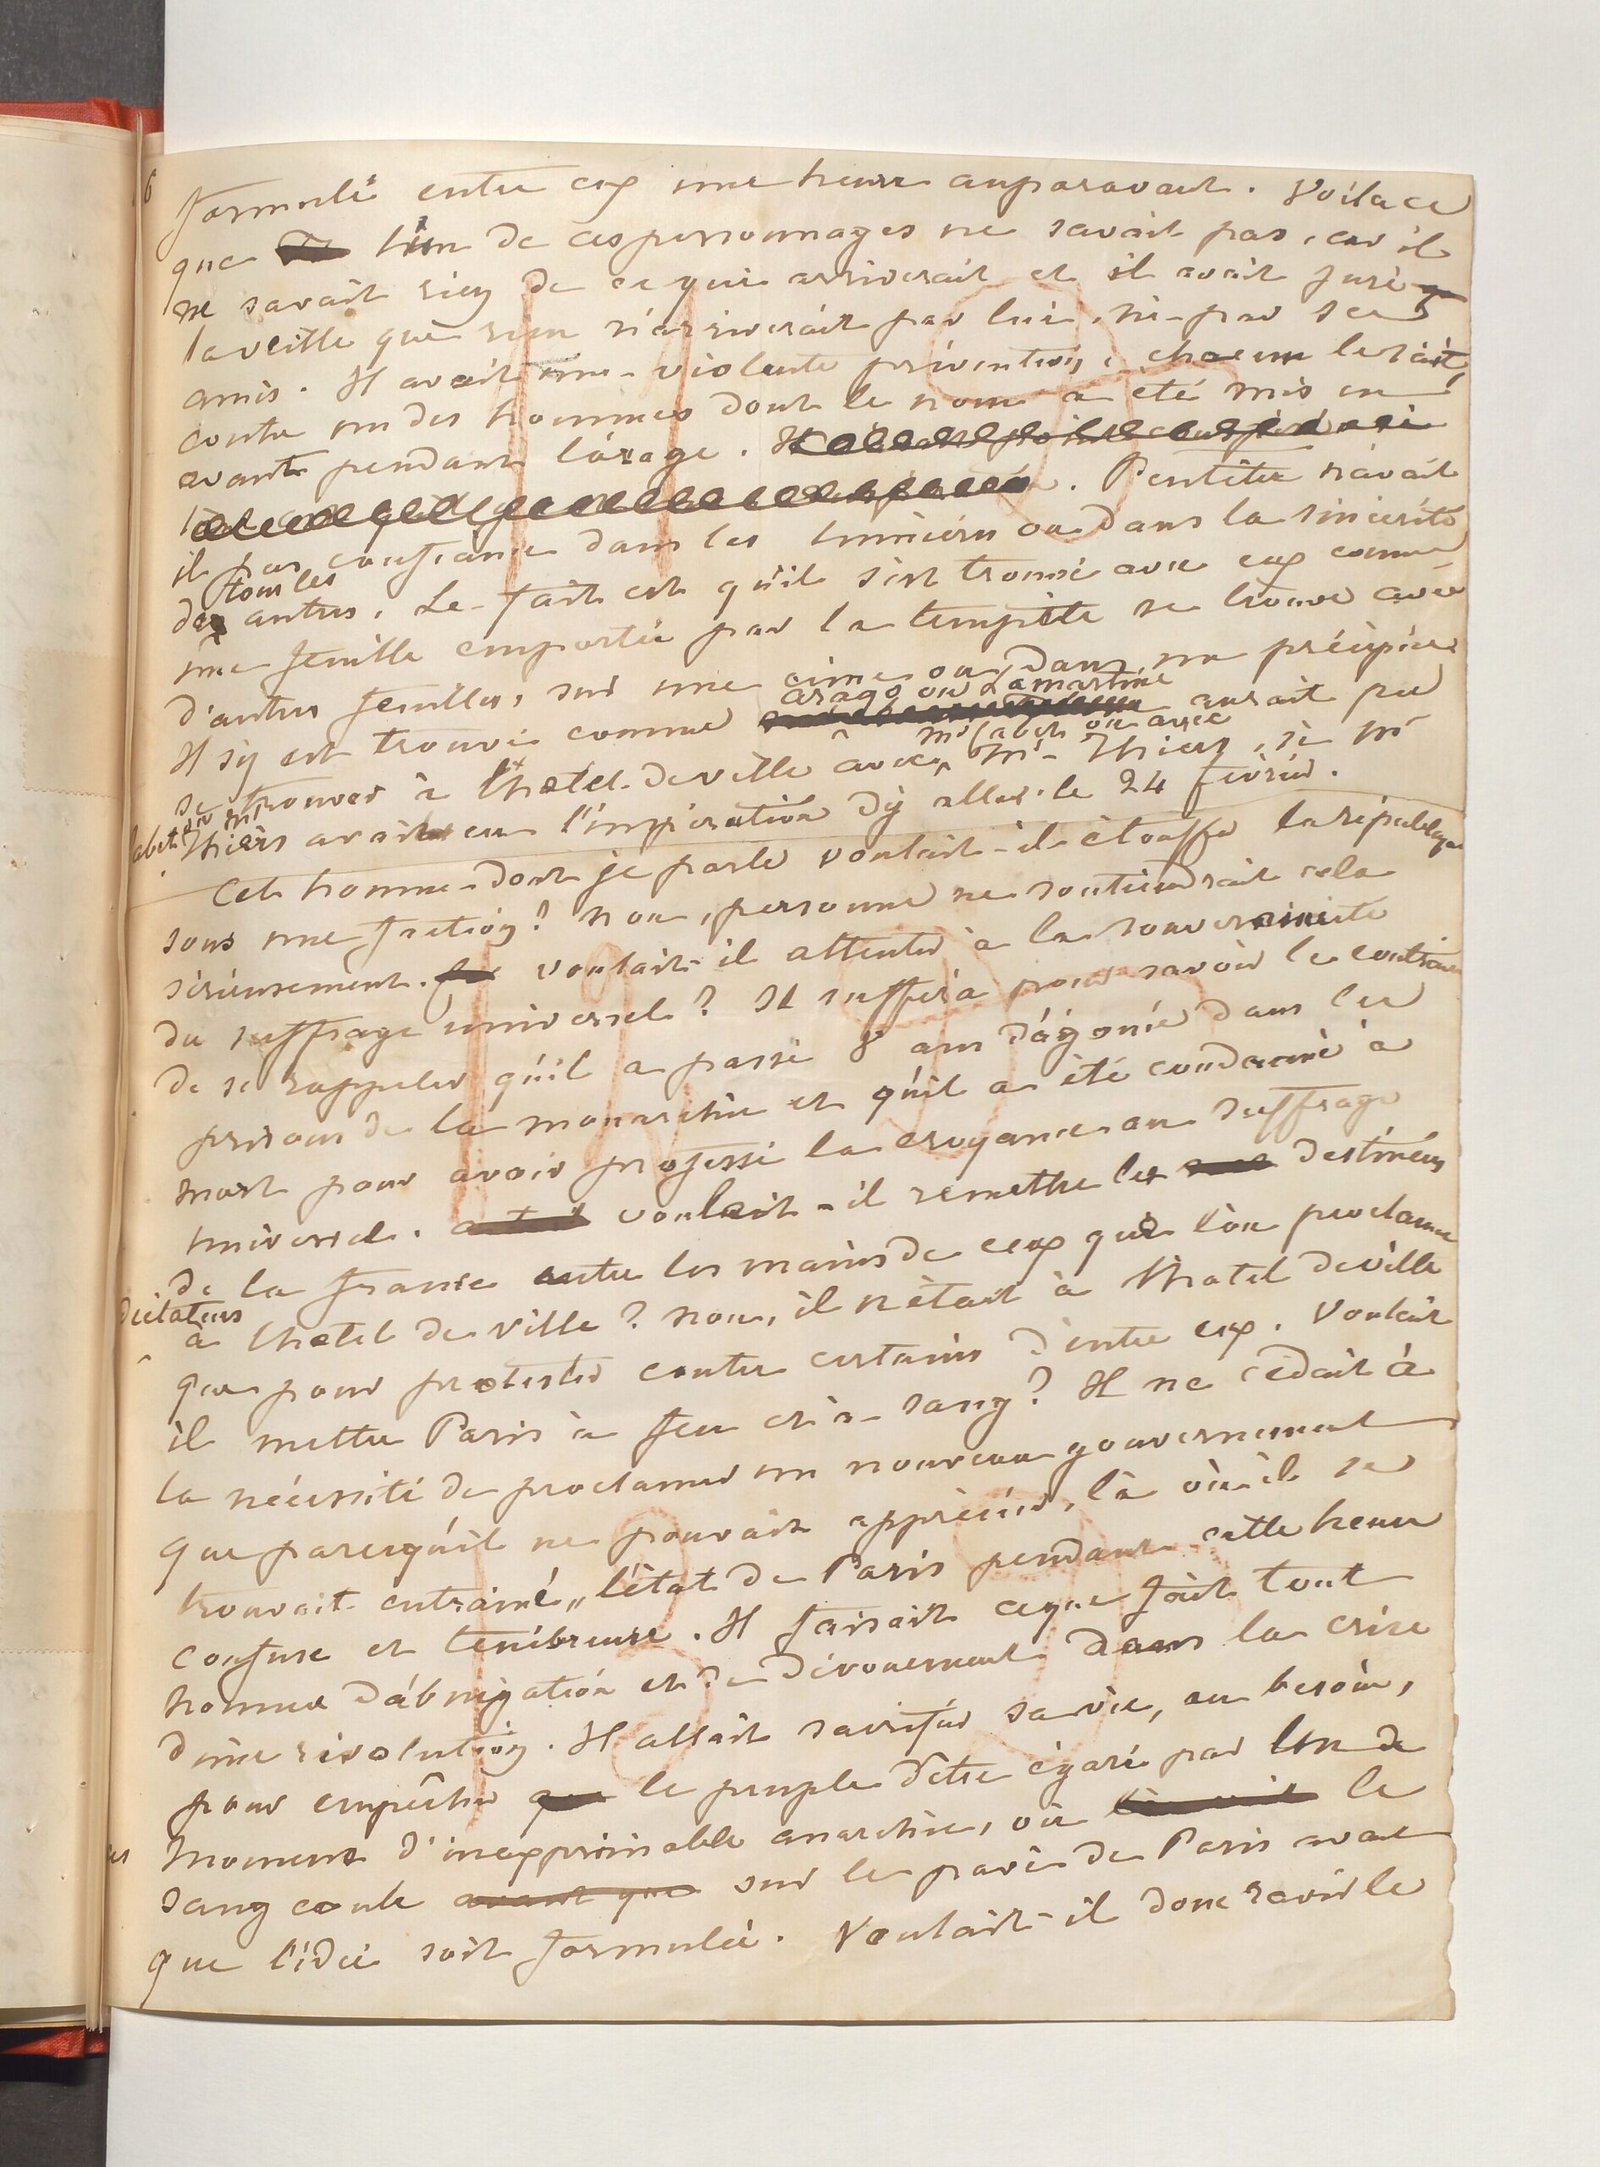 6
formulé entre eux une heure auparavant. Voilà ce
que l'un de ces personnages ne savait pas, car il
ne savait rien de ce qui arriverait et il avait juré
la veille que rien n'arriverait par lui, ni par ses
amis. Il avait une violente prévention, chacun le sait,
contre un des hommes dont le nom a été mis en
avant pendant l'orage. Il
. Peutêtre n'avait
il pas confiance dans les lumières ou dans la sincérité
tous les
des autres. Le fait est qu'il s'est trouvé avec eux comme
une feuille emportée par la tempête se trouve avec
d'autres feuilles, sur une cime ou dans un précipice
arago ou Lamartine
Il s'y est trouvé comme aurait pu
mr Cabet ou avec
se trouver à l'hotel de ville avec mr Thiers, si mr
Cabet ou mr
Thiers avait eu l'inspiration d'y aller le 24 février.
Cet homme dont je parle voulait-il étouffer la république
sous une faction? non, personne ne soutiendrait cela
sérieusement. voulait-il attenter à la souveraineté
du suffrage universel? Il suffira pour savoir le contraire
de se rappeler qu'il a passé 8 ans d'agonie dans les
prisons de la monarchie et qu'il a été condamné à
mort pour avoir professé la croyance au suffrage
universel. voulait-il remettre les destinées
de la france entre les mains de ceux que l'on proclama
dictateurs
à l'hotel de ville? non, il n'était à l'hotel de ville
que pour protester contre certains d'entre eux. Voulait
il mettre Paris à feu et à sang? Il ne cédait à
la nécessité de proclamer un nouveau gouvernement
que parcequ'il ne pouvait apprécier, là où il se
trouvait entrainé, l'état de Paris pendant cette heure
confuse et ténébreuse. Il faisait ce que fait tout
homme d'abnégation et de dévouement dans la crise
d'une révolution. Il allait sacrifier sa vie, au besoin,
pour empêcher que le peuple d'être égaré par l'un de
ces
momens d'inexprimable anarchie, où le
sang coule avant que sur le pavé de Paris avant
que l'idée soit formulée. Voulait-il donc ravir le